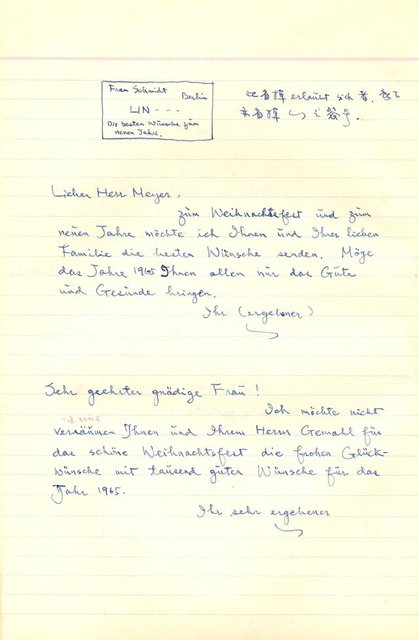 Frau Schmidt
Berlin
LIN - - -
Die besten Wünsche zum
neuen Jahre.
erlaubt sich
Lieber Herr Meyer,
zum Weihnachtsfest und zum
neuen Jahre möchte ich Ihnen und Ihrer lieben
Familie die besten Wünsche senden. Möge
das Jahr 1965 Ihnen allen nur das Gute
und Gesunde bringen.
Ihr (ergebener)
Sehr geehrter gnädige Frau!
Ich möchte nicht
versäumen Ihnen und Ihrem Herrn Gemahl für
das schöne Weihnachtsfest die frohen Glück-
wünsche mit tausend guter Wünsche für das
Jahr 1965.
Ihr sehr ergebener